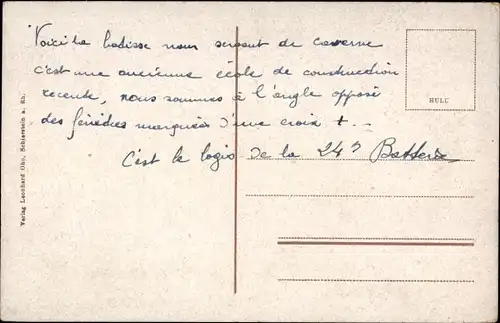 Voici la batisse nous servant de caserne
c'est une ancienne école de construction
recente, nous sommes à l'angle opposé
des fenêtres marquées d'une croix + . -
C'est le logis de la 24e Batterie
Verlag Leonhard Ohn, Schierstein a. Rh.